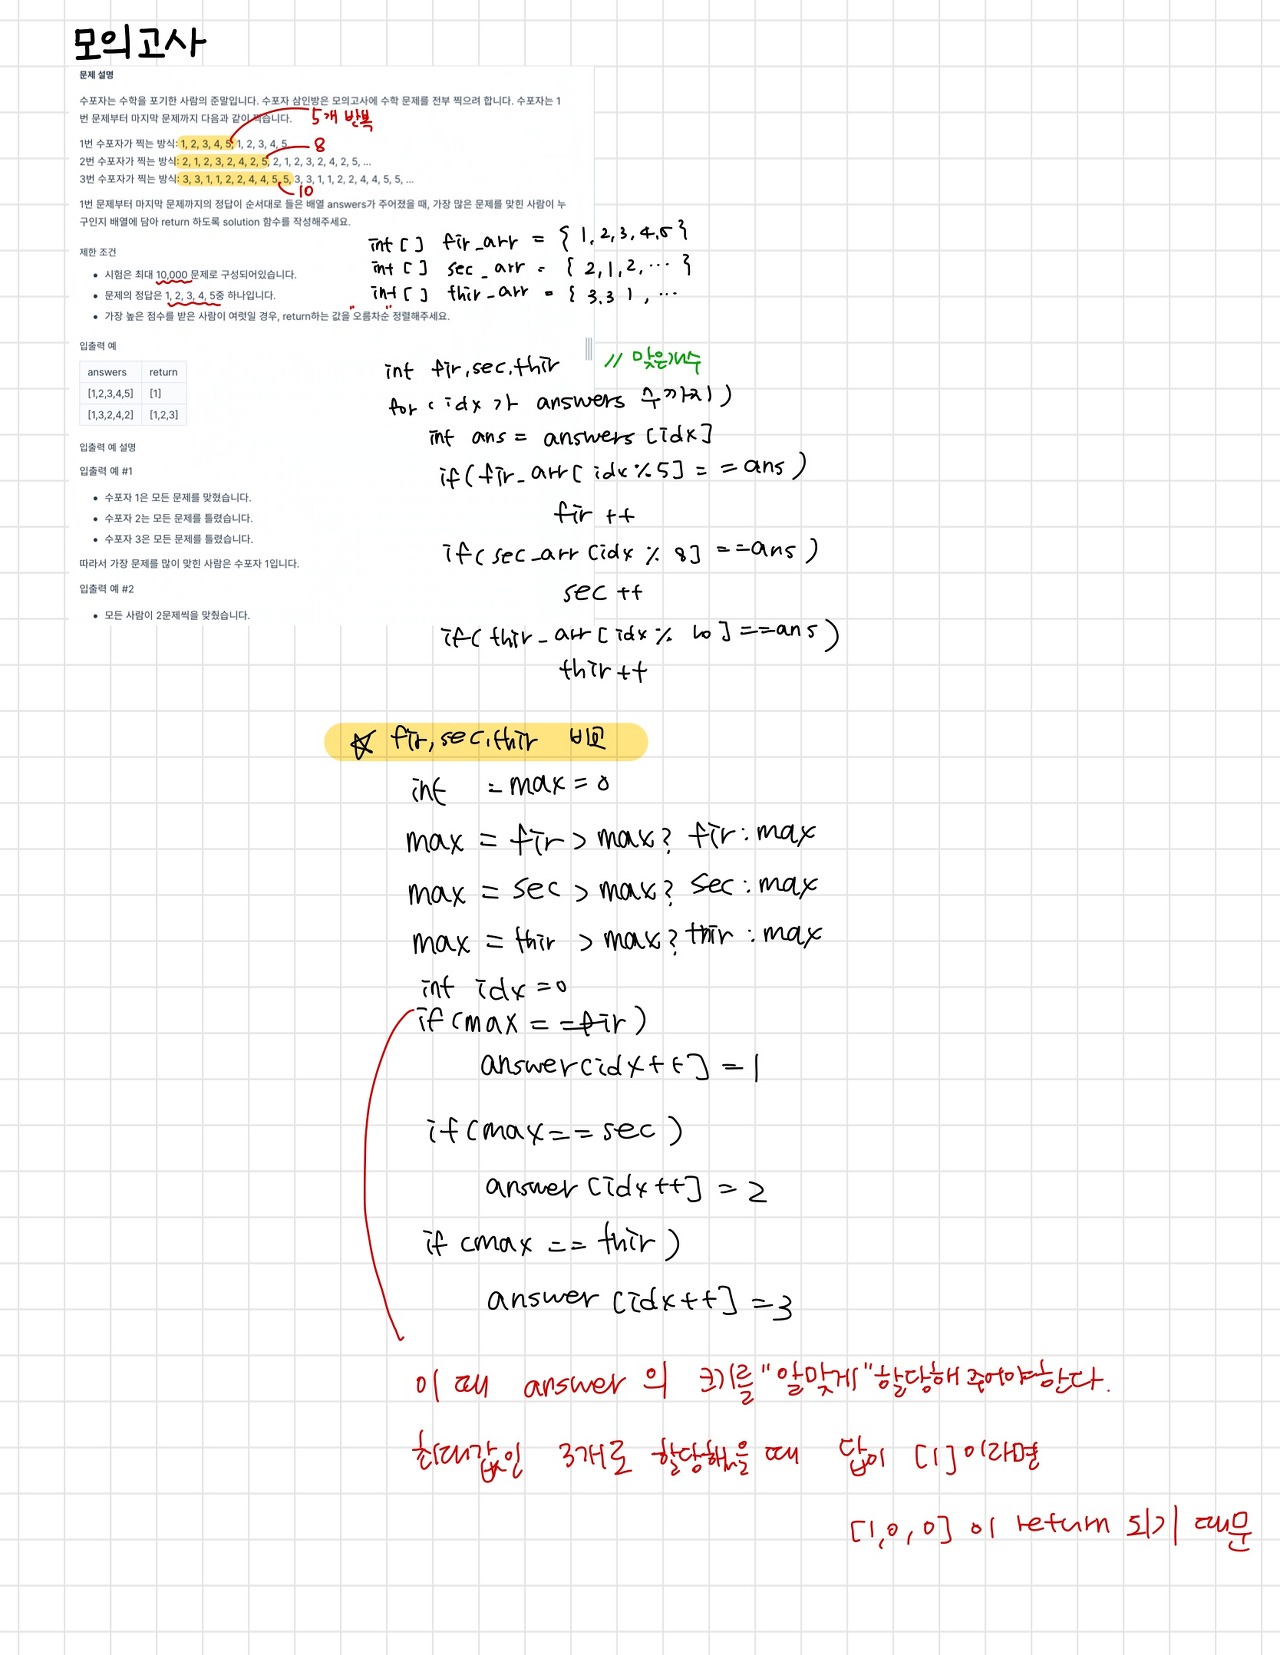 모의고사
문제 설명
수포자는 수학을 포기한 사람의 준말입니다. 수포자 삼인방은 모의고사에 수학 문제를 전부 찍으려 합니다. 수포자는 1
번 문제부터 마지막 문제까지 다음과 같이 찍습니다.
5개 반복
1번 수포자가 찍는 방식: 1, 2, 3, 4, 5, 1, 2, 3, 4, 5
8
2번 수포자가 찍는 방식: 2, 1, 2, 3, 2, 4, 2, 5, 2, 1, 2, 3, 2, 4, 2, 5, ...
3번 수포자가 찍는 방식: 3, 3, 1, 1, 2, 2, 4, 4, 5, 5, 3, 3, 1, 1, 2, 2, 4, 4, 5, 5, ...
10
1번 문제부터 마지막 문제까지의 정답이 순서대로 들은 배열 answers가 주어졌을 때, 가장 많은 문제를 맞힌 사람이 누
구인지 배열에 담아 return 하도록 solution 함수를 작성해주세요.
int [] fir_arr = { 1, 2, 3, 4, 5 }
제한 조건
int [] sec_arr = { 2, 1, 2, ... }
시험은 최대 10,000 문제로 구성되어있습니다.
int [] thir_arr = { 3, 3 1, ...
• 문제의 정답은 1, 2, 3, 4, 5중 하나입니다.
• 가장 높은 점수를 받은 사람이 여럿일 경우, return하는 값을 "오름차순" 정렬해주세요.
입출력 예
answers return
[1,2,3,4,5] [1]
[1,3,2,4,2] [1,2,3]
입출력 예 설명
입출력 예 #1
• 수포자 1은 모든 문제를 맞혔습니다.
• 수포자 2는 모든 문제를 틀렸습니다.
• 수포자 3은 모든 문제를 틀렸습니다.
따라서 가장 문제를 많이 맞힌 사람은 수포자 1입니다.
입출력 예 #2
• 모든 사람이 2문제씩을 맞췄습니다.
int fir, sec, thir // 맞은개수
for ( idx 가 answers 수까지 )
int ans = answers [idx]
if ( fir_arr [ idx % 5] == ans )
fir ++
if ( sec_arr [idx % 8] == ans )
sec ++
if ( thir_arr [idx % 10] == ans )
thir ++
☆ fir, sec, thir 비교
int = max = 0
max = fir > max ? fir : max
max = sec > max ? sec : max
max = thir > max ? thir : max
int idx = 0
if (max == fir)
answer [idx++] = 1
if (max == sec )
answer [idx++] = 2
if (max == thir )
answer [idx++] = 3
이 때 answer 의 크기를 "알맞게" 할당해 주어야한다.
최대값인 3개로 할당했을 때 답이 [1] 이라면
[1, 0, 0] 이 return 되기 때문